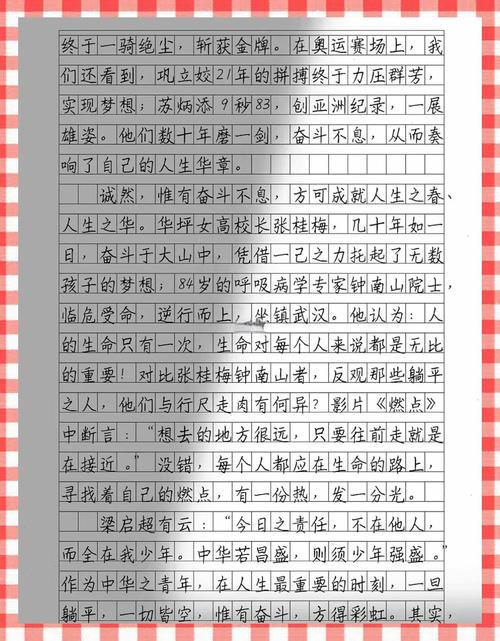 终于一骑绝尘，斩获金牌。在奥运赛场上，我
们还看到，巩立姣21年的拼搏终于力压群芳，
实现梦想；苏炳添9秒83，创亚洲纪录，一展
雄姿。他们数十年磨一剑，奋斗不息，从而奏
响了自己的人生华章。
诚然，惟有奋斗不息，方可成就人生之春、
人生之华。华坪女高校长张桂梅，几十年如一
日，奋斗于大山中，凭借一己之力托起了无数
孩子的梦想；84岁的呼吸病学专家钟南山院士，
临危受命，逆行而上，坐镇武汉。他认为：人
的生命只有一次，生命对每个人来说都是无比
的重要！对比张桂梅钟南山者，反观那些躺平
之人，他们与行尸走肉有何异？影片《燃点》
中断言：“想去的地方很远，只要往前走就是
在接近。”没错，每个人都应在生命的路上，
寻找着自己的燃点，有一份热，发一分光。
梁启超有云：“今日之责任，不在他人，
而全在我少年。中华若昌盛，则须少年强盛。”
作为中华之青年，在人生最重要的时刻，一旦
躺平，一切皆空，惟有奋斗，方得彩虹。其实，